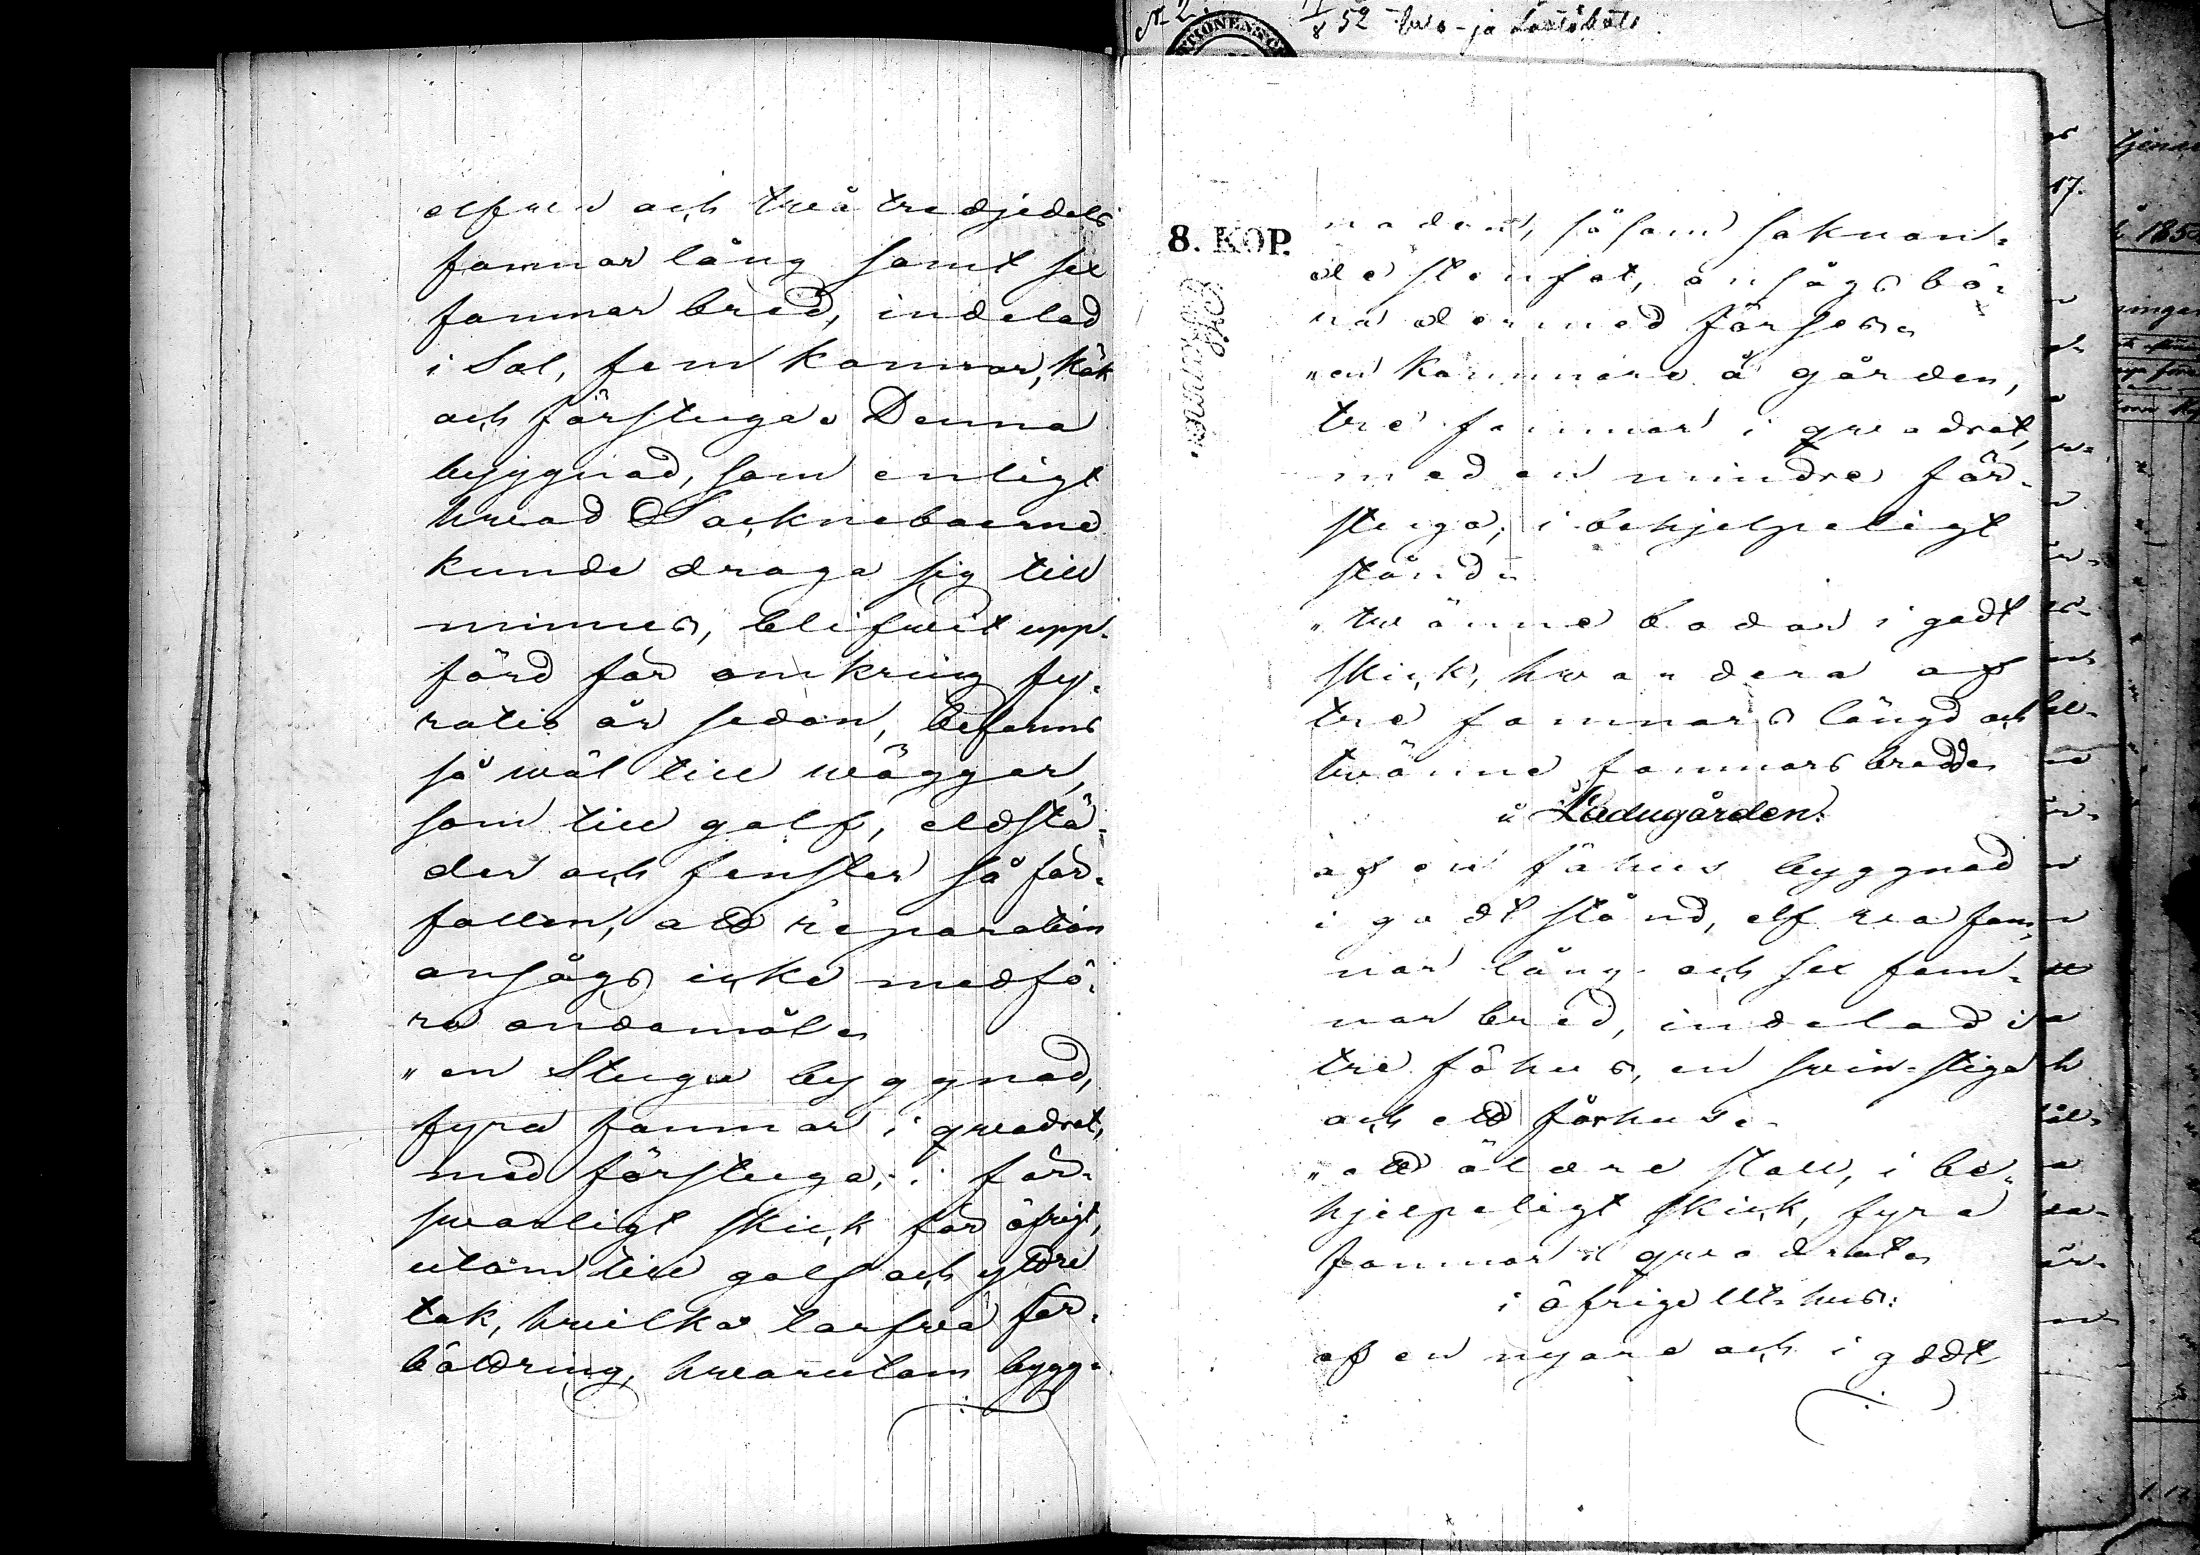 elfva och två tredjedels
famnar lång samt sex
famnar bred, indelad
i Sal, fem kamrar, kök
och förstuga. Denna
byggnad, som enligt
hvad Sackneboerne
kunde draga sig till
minnes, blifvit upp-
förd för omkring fy-
ratio år sedan, befanns
så väl till väggar,
som till golf, eldstä-
der och fenster så för-
fallen, att reparation
ansågs icke medfö-
ra ändamål.
" en Stugu byggnad,
fyra famnar i qvadrat,
med förstuga, i för-
svarligt skick för öfrigt,
utom till golf och yttre
tak, hvilka tarfva för-
bättring, hvarutom bygg-
8. KOP.
naden, såsom saknan-
de stenfot, ansågs bö-
ra dermed förses.
" en kammare å gården,
tre famnar i qvadrat,
med en mindre för-
stuga, i behjelpeligt
stånd.
" tvänne bodar i godt
skick, hvardera af
tre famnars längd och
tvänne famnars bredd.
å Ladugården:
af en fähus byggnad
i godt stånd, elfva fam-
nar lång och sex fam-
nar bred, indelad i
tre fähus, en svin-stiga
och ett fårhus.
" ett äldre stall, i be-
hjelpeligt skick, fyra
famnar i qvadrat.
i öfriga Uthus:
af en nyare och i godt
8/52
17.